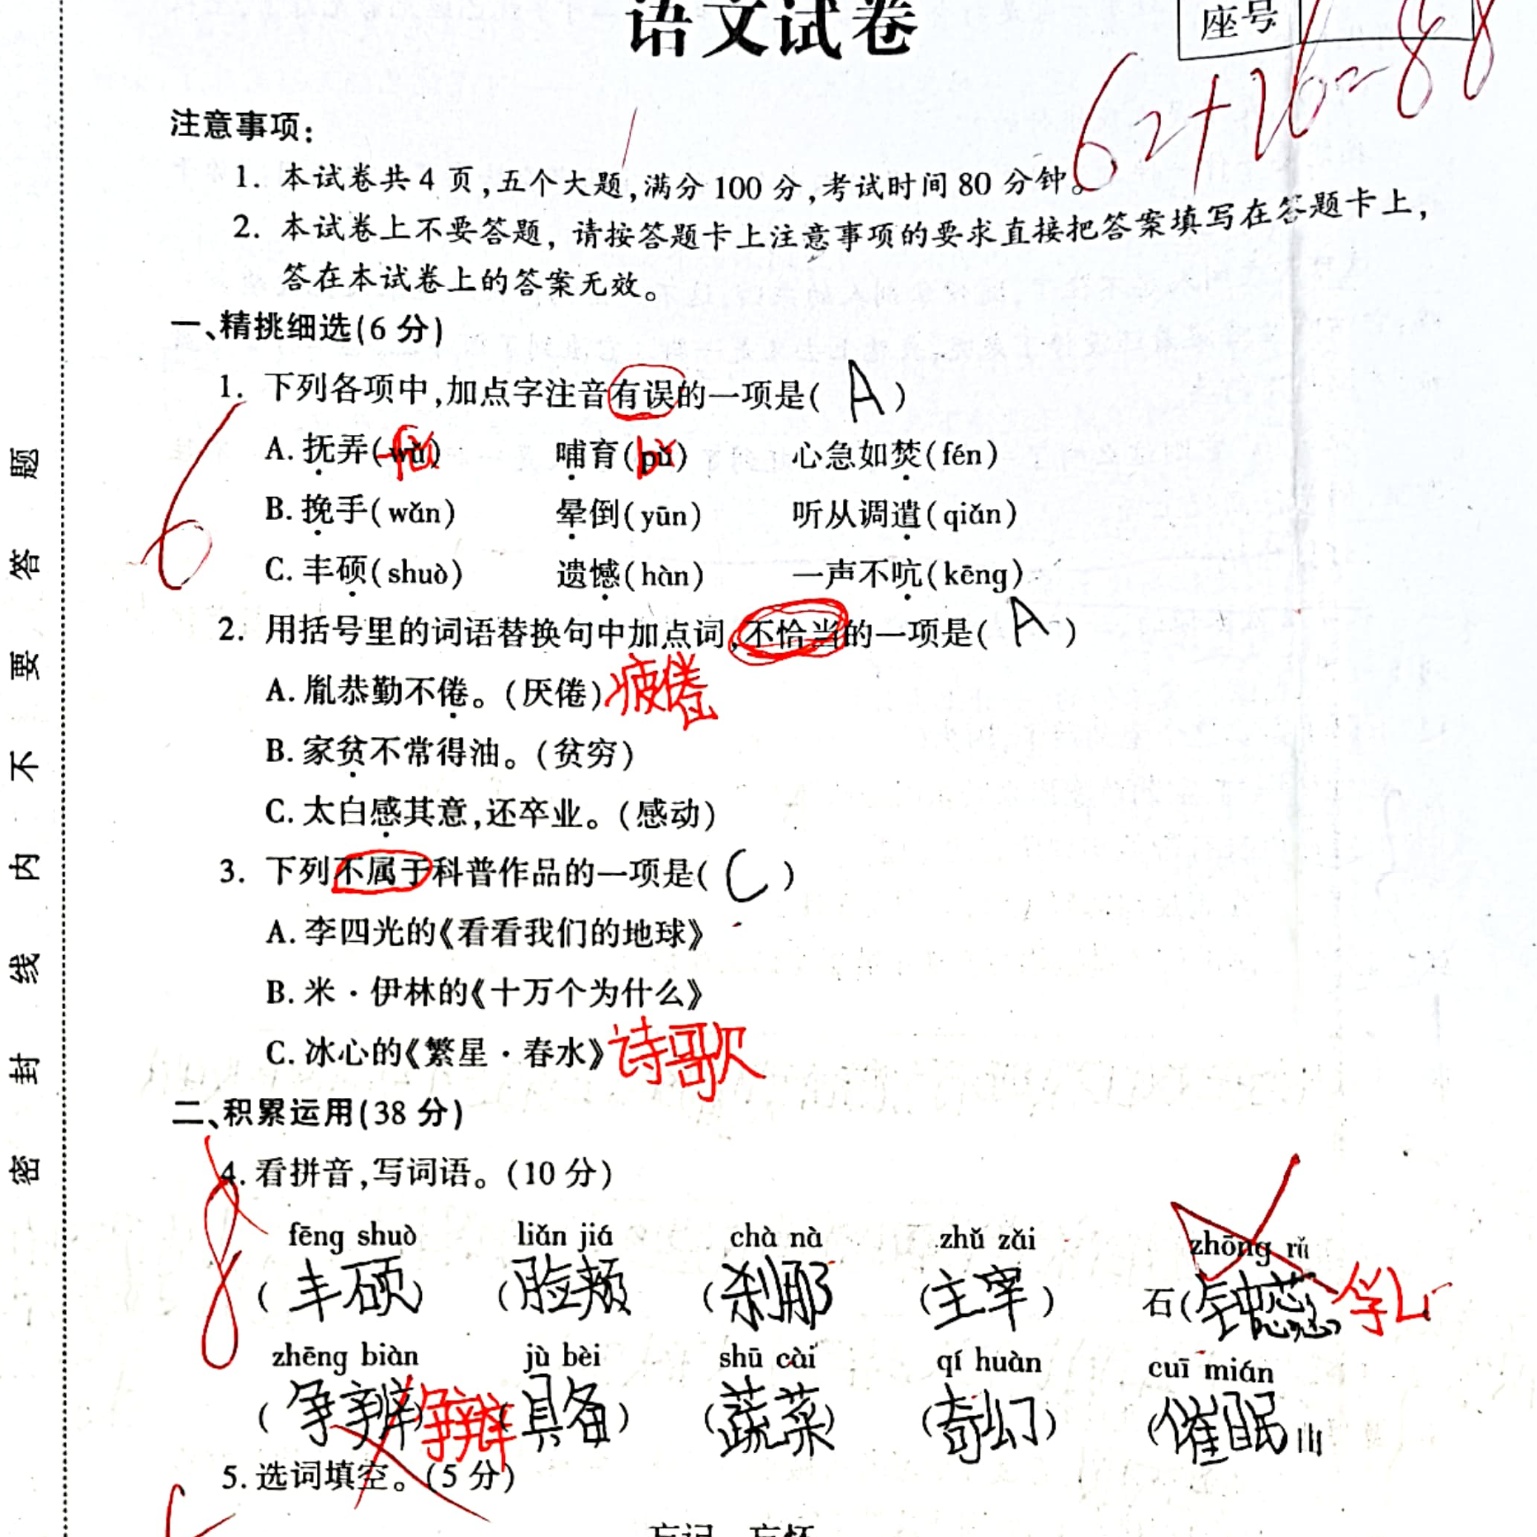 语文试卷
座号
62+26=88
注意事项:
1. 本试卷共 4 页,五个大题,满分 100 分,考试时间 80 分钟。
2. 本试卷上不要答题,请按答题卡上注意事项的要求直接把答案填写在答题卡上,
答在本试卷上的答案无效。
一、精挑细选(6 分)
6
1. 下列各项中,加点字注音有误的一项是( A )
A. 抚弄(wǔ) fǔ 哺育(pǔ) bǔ 心急如焚(fén)
B. 挽手(wǎn) 晕倒(yūn) 听从调遣(qiǎn)
C. 丰硕(shuò) 遗憾(hàn) 一声不吭(kēng)
2. 用括号里的词语替换句中加点词,不恰当的一项是( A )
A. 胤恭勤不倦。(厌倦) 疲倦
B. 家贫不常得油。(贫穷)
C. 太白感其意,还卒业。(感动)
3. 下列不属于科普作品的一项是( C )
A. 李四光的《看看我们的地球》
B. 米·伊林的《十万个为什么》
C. 冰心的《繁星·春水》 诗歌
二、积累运用(38 分)
8
4. 看拼音,写词语。(10 分)
fēng shuò liǎn jiá chà nà zhǔ zǎi zhōng rǔ
(丰硕) (脸颊) (刹那) (主宰) 石(钟蕊) 乳
zhēng biàn jù bèi shū cài qí huàn cuī mián
(争辨) 争辩 (具备) (蔬菜) (奇幻) (催眠)
5. 选词填空。(5 分)
忘记 忘怀
密封线内不要答题